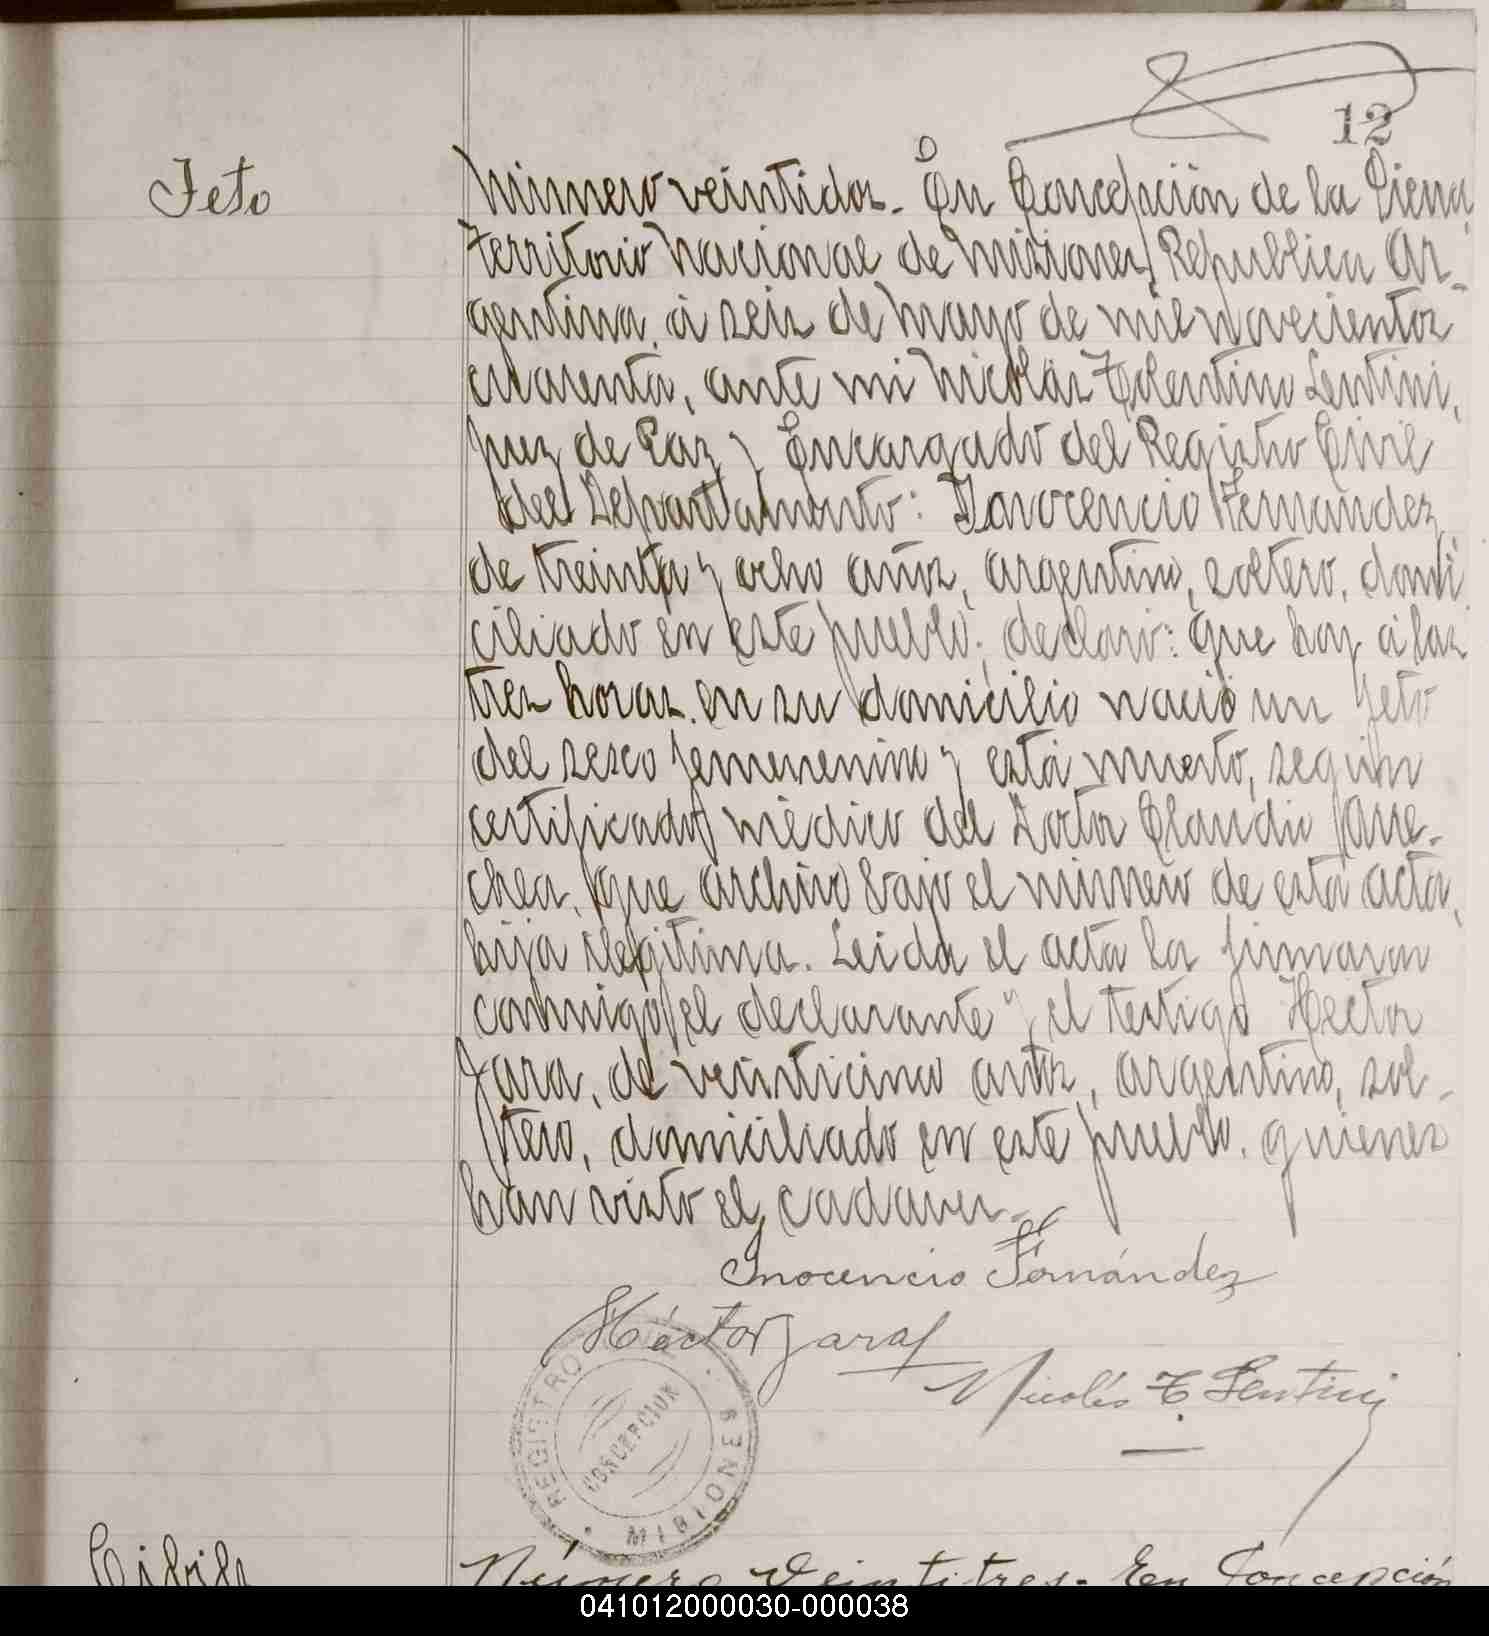 12
Feto
Número veintidos.- En Concepción de la Sierra,
territorio Nacional de Misiones, Republica Ar-
gentina, á seis de Mayo de mil novecientos
cuarenta, ante mi Nicolás Tolentino Lentini,
Juez de Paz y Encargado del Registro Civil
del Departamento: Inocencio Fernandez,
de treinta y ocho años, argentino, soltero, domi
ciliado en este pueblo; declaró: Que hoy á las
tres horas, en su domicilio nació un feto
del sexo femenenino y está muerto, según
certificado médico del Doctor Claudio
chea, que archivo bajo el número de esta acta,
hija ilegitima. Leida el acta la firmaron
conmigo, el declarante y el testigo Hector
Jara, de veinticinco años, argentino, sol-
tero, domiciliado en este pueblo, quienes
han visto el cadaver.-
Inocencio Fernández
Héctor Jara
Nicolás T. Lentini
REGISTRO
CONCEPCION
MISIONES
Número Veintitres.- En Concepción
041012000030-000038